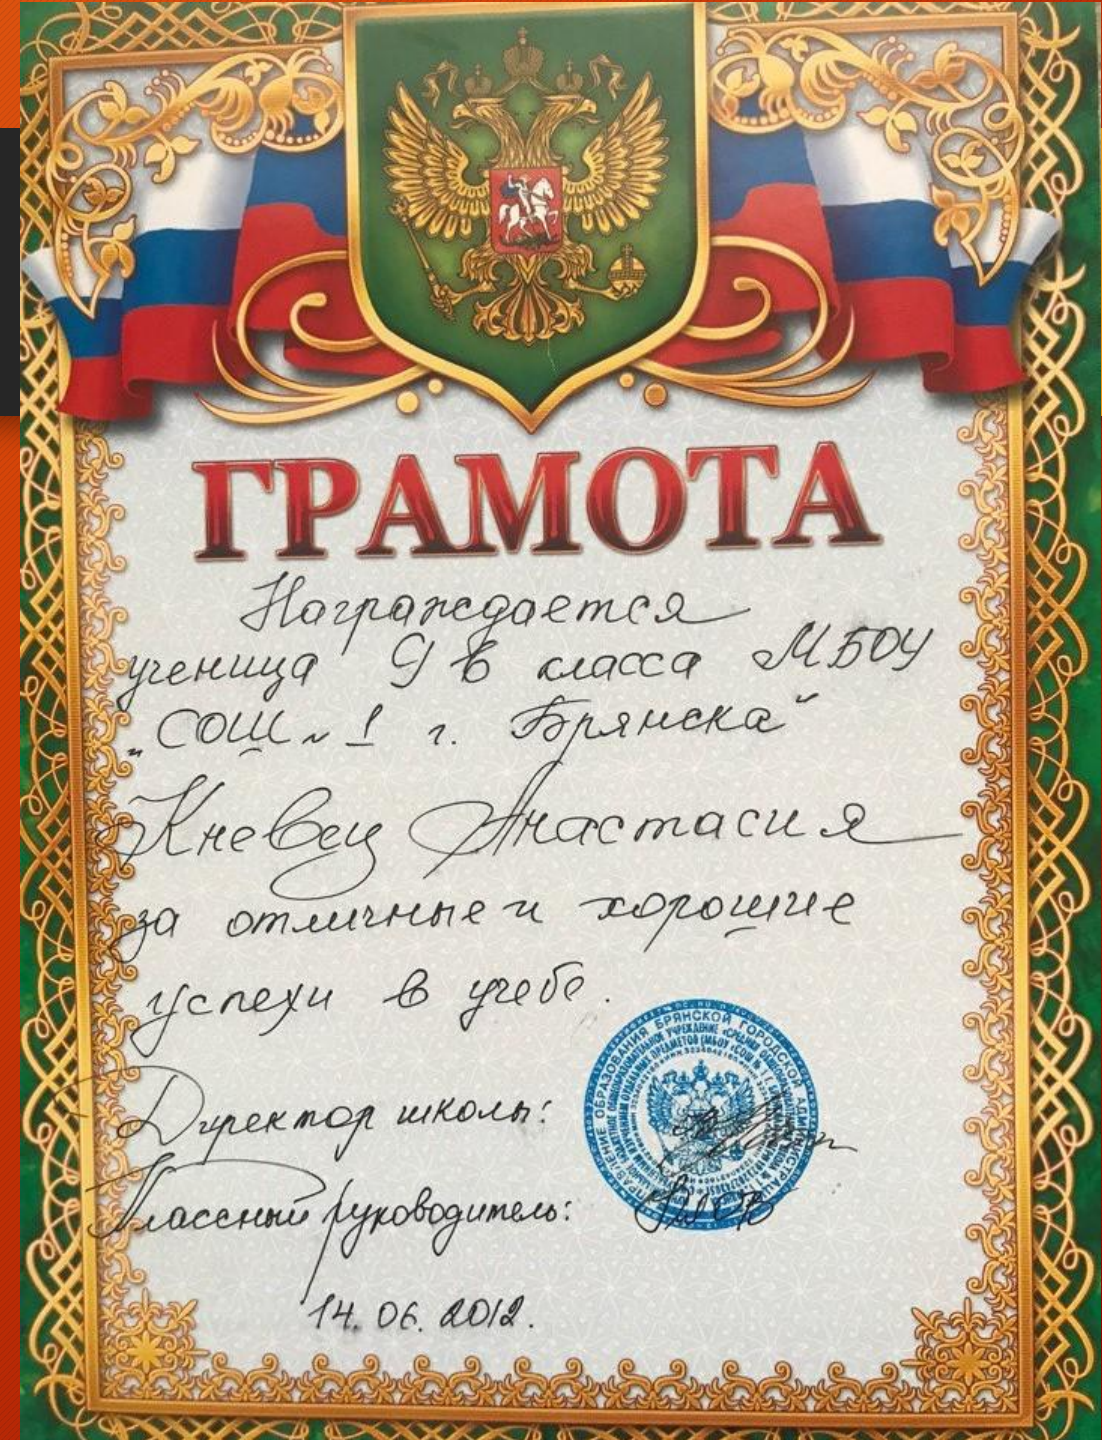 ГРАМОТА
Награждается
ученица 9 в класса МБОУ
„СОШ № 1 г. Брянска"
Кневец Анастасия
за отличные и хорошие
успехи в учебе.
Директор школы:
Классный руководитель:
14.06.2012.
УПРАВЛЕНИЕ ОБРАЗОВАНИЯ БРЯНСКОЙ ГОРОДСКОЙ